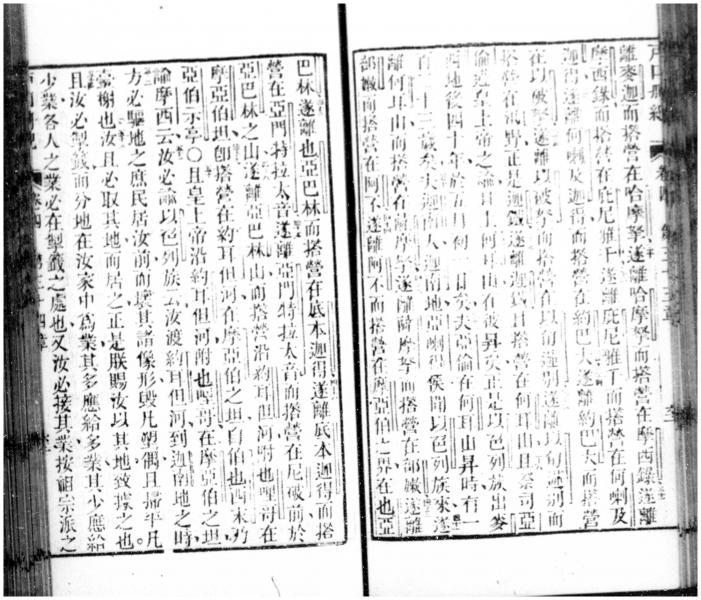 離麥迦而搭營在哈摩拏遂離哈摩拏而搭營在摩西錄遂離
摩西錄而搭營在庇尼雅干遂離庇尼雅干而搭營在何喇及
迦得遂離何喇及迦得而搭營在約巴大遂離約巴大而搭營
在以破拏遂離以破拏而搭營在以旬迦別遂離以旬迦別而
搭營在 野正是迦鐵遂離迦鐵且搭營在何耳山且祭司亞
論遵皇上帝之諭且上何耳山在彼昇矣正是以色列族出麥
西地後四十年於五月初一日矣夫亞論在何耳山昇時有一
百二十三歲矣夫迦南人迦南地亞喇得侯聞以色列族來遂
離何耳山而搭營在薩摩拏遂離薩摩拏而搭營在部嫩遂離
部嫩而搭營在阿不遂離阿不而搭營在摩亞伯之界在也亞
巴林遂離也亞巴林而搭營在底本迦得遂離底本迦得而搭
營在亞門特拉太音遂離亞門特拉太音而搭營在尼破前於
亞巴林之山遂離亞巴林山而搭營沿約耳但河附也哩哥在
摩亞伯坦卽搭營在約耳但河在摩亞伯之坦自伯也西末乃
亞伯示亭〇且皇上帝沿約耳但河附也哩哥在摩亞伯之坦
諭摩西云汝必諭以色列族云汝渡約耳但河到迦南地之時
方必驅地之庶民居汝前而壞其諸像形毀凡塑偶且掃平凡
臺榭也汝且必取其地而居之正是朕賜汝以其地致據之也
且汝必掣籤而分地在汝家中爲業其多應給多業其少應給
少業各人之業必在掣籤之處也又汝必接其業按祖宗派之